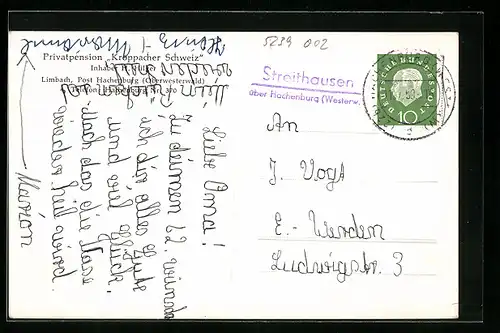 5239 002
Privatpension "Kroppacher Schweiz"
Limbach, Post Hachenburg (Oberwesterwald)
Streithausen
über Hachenburg (Westerw.
DEUTSCHE BUNDESPOST
10
An
J. Vogt
E.-Werden
Ludwigstr. 3
Liebe Oma!
Zu deinem 62. wünsche
ich dir alles Gute
und viel Glück.
auch das die Nase
wieder heil wird.
Marion
wieder